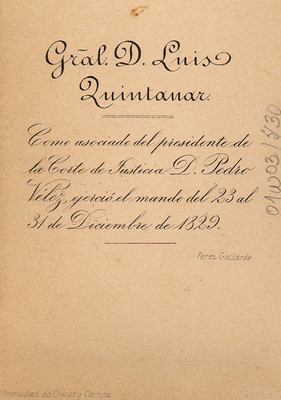 Gral. D. Luis
Quintanar.
Como asociado del presidente de
la Corte de Justicia D. Pedro
Velez, ejerció el mando del 23 al
31 de Diciembre de 1829.
Perez Gallardo
Propiedad de Cruces y Campa